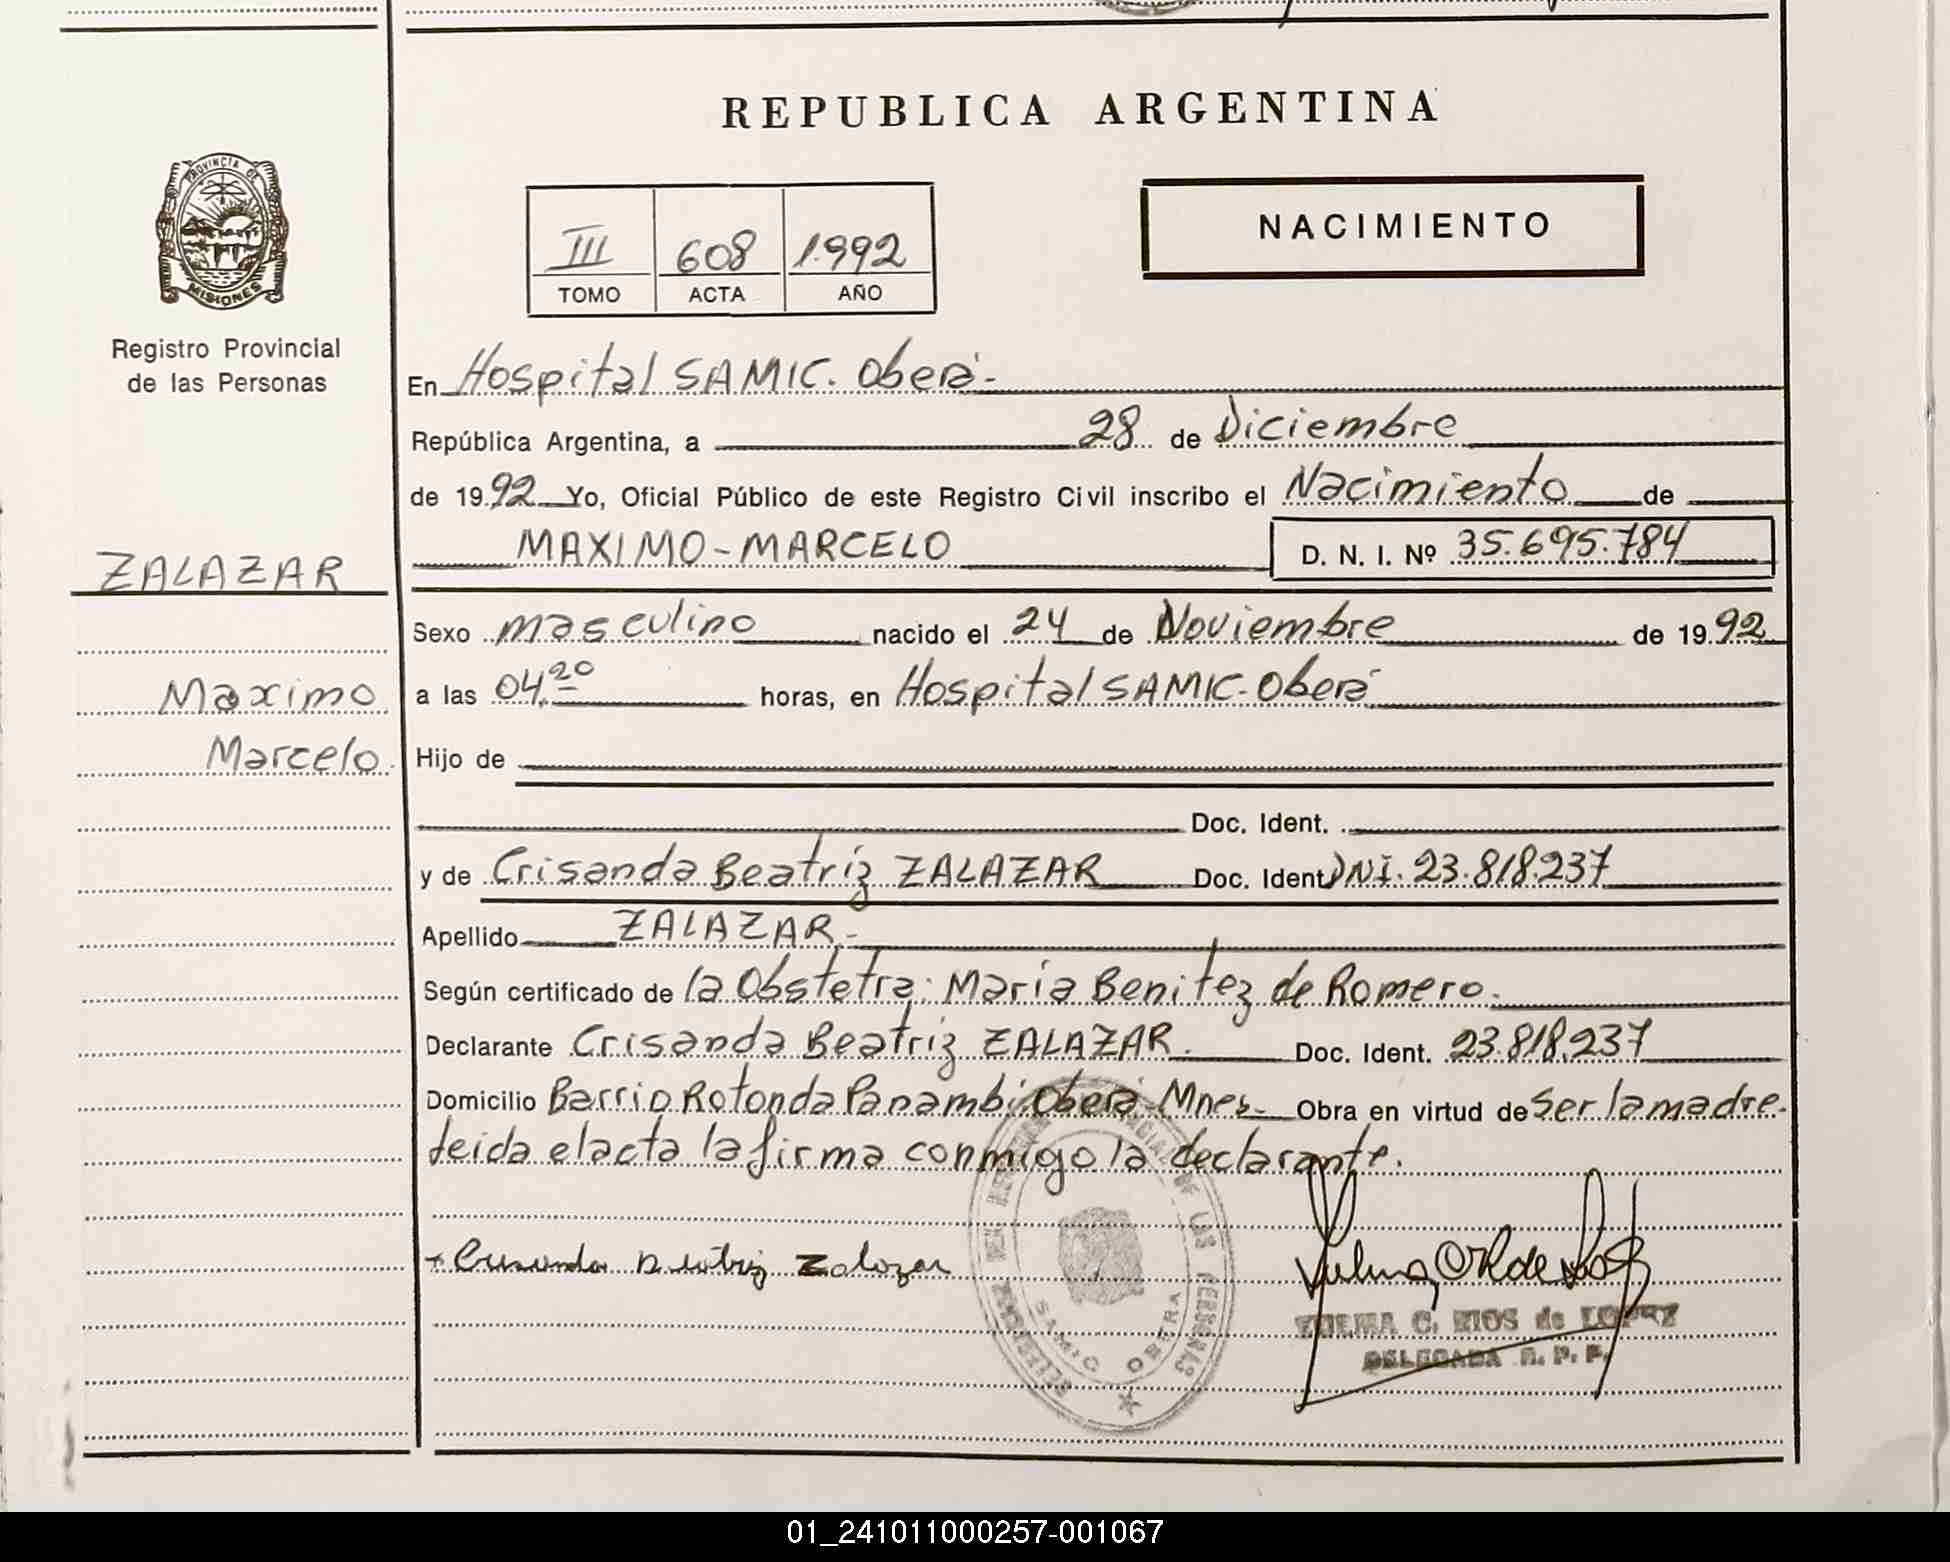 REPUBLICA ARGENTINA
PROVINCIA DE
MISIONES
Registro Provincial
de las Personas
NACIMIENTO
III 608 1.992
TOMO ACTA AÑO
En Hospital SAMIC. Oberá-
República Argentina, a 28 de Diciembre
de 1992 Yo, Oficial Público de este Registro Civil inscribo el Nacimiento de
MAXIMO-MARCELO D. N. I. Nº 35.695.784
ZALAZAR
Sexo masculino nacido el 24 de Noviembre de 1992
Maximo
a las 04.20 horas, en Hospital SAMIC-Oberá
Marcelo
Hijo de
Doc. Ident.
y de Crisanda Beatriz ZALAZAR Doc. Ident DNI. 23.818.237
Apellido ZALAZAR.-
Según certificado de la Obstetra: María Benitez de Romero.
Declarante Crisanda Beatriz ZALAZAR. Doc. Ident. 23.818.237
Domicilio Barrio Rotonda Panambi-Oberá-Mnes- Obra en virtud de Ser la madre.
leida el acta la firma conmigo la declarante.
Beatriz Zalazar
THELMA C. RIOS de LOPEZ
DELEGADA R. P. P.
PROVINCIAL DE LAS PERSONAS
SAMIC OBERA
01_241011000257-001067